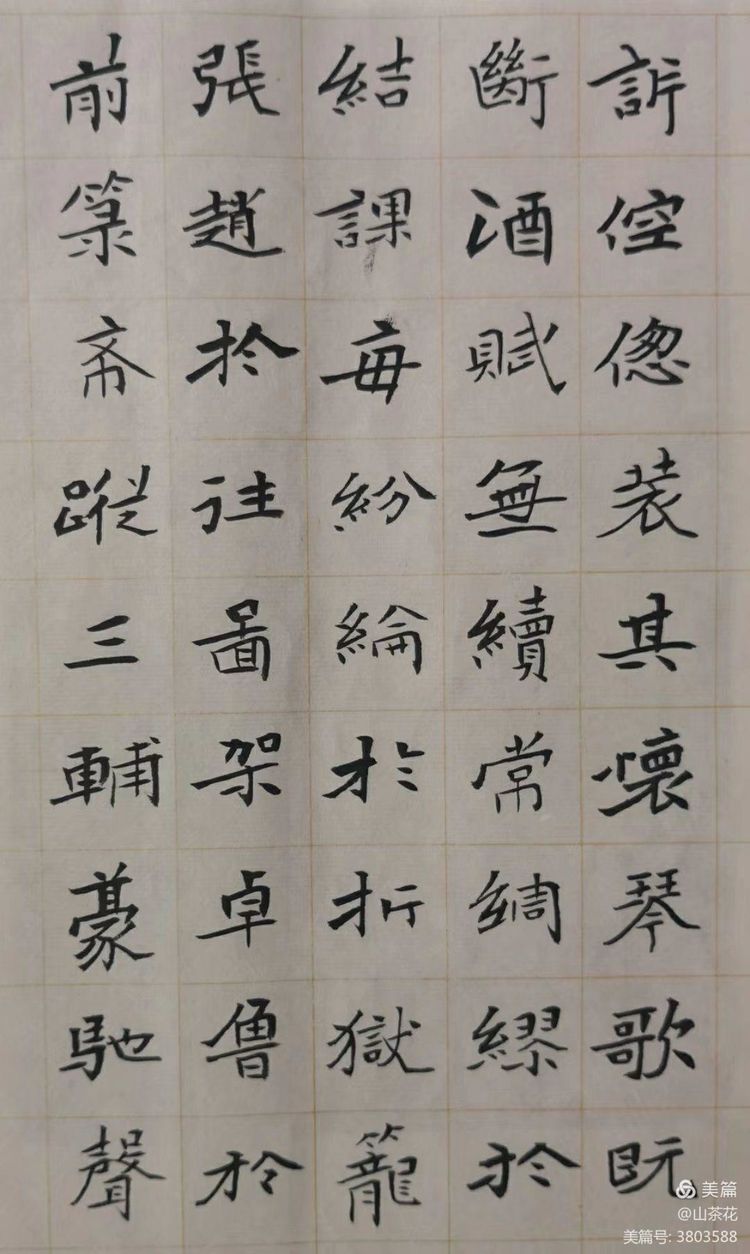 訴倥偬装其懷琴歌既
斷酒賦無續常綢繆於
結課每紛綸於折獄籠
張趙於往啚架卓魯於
前箓希蹤三輔豪馳聲
美篇
@山茶花
美篇号: 3803588